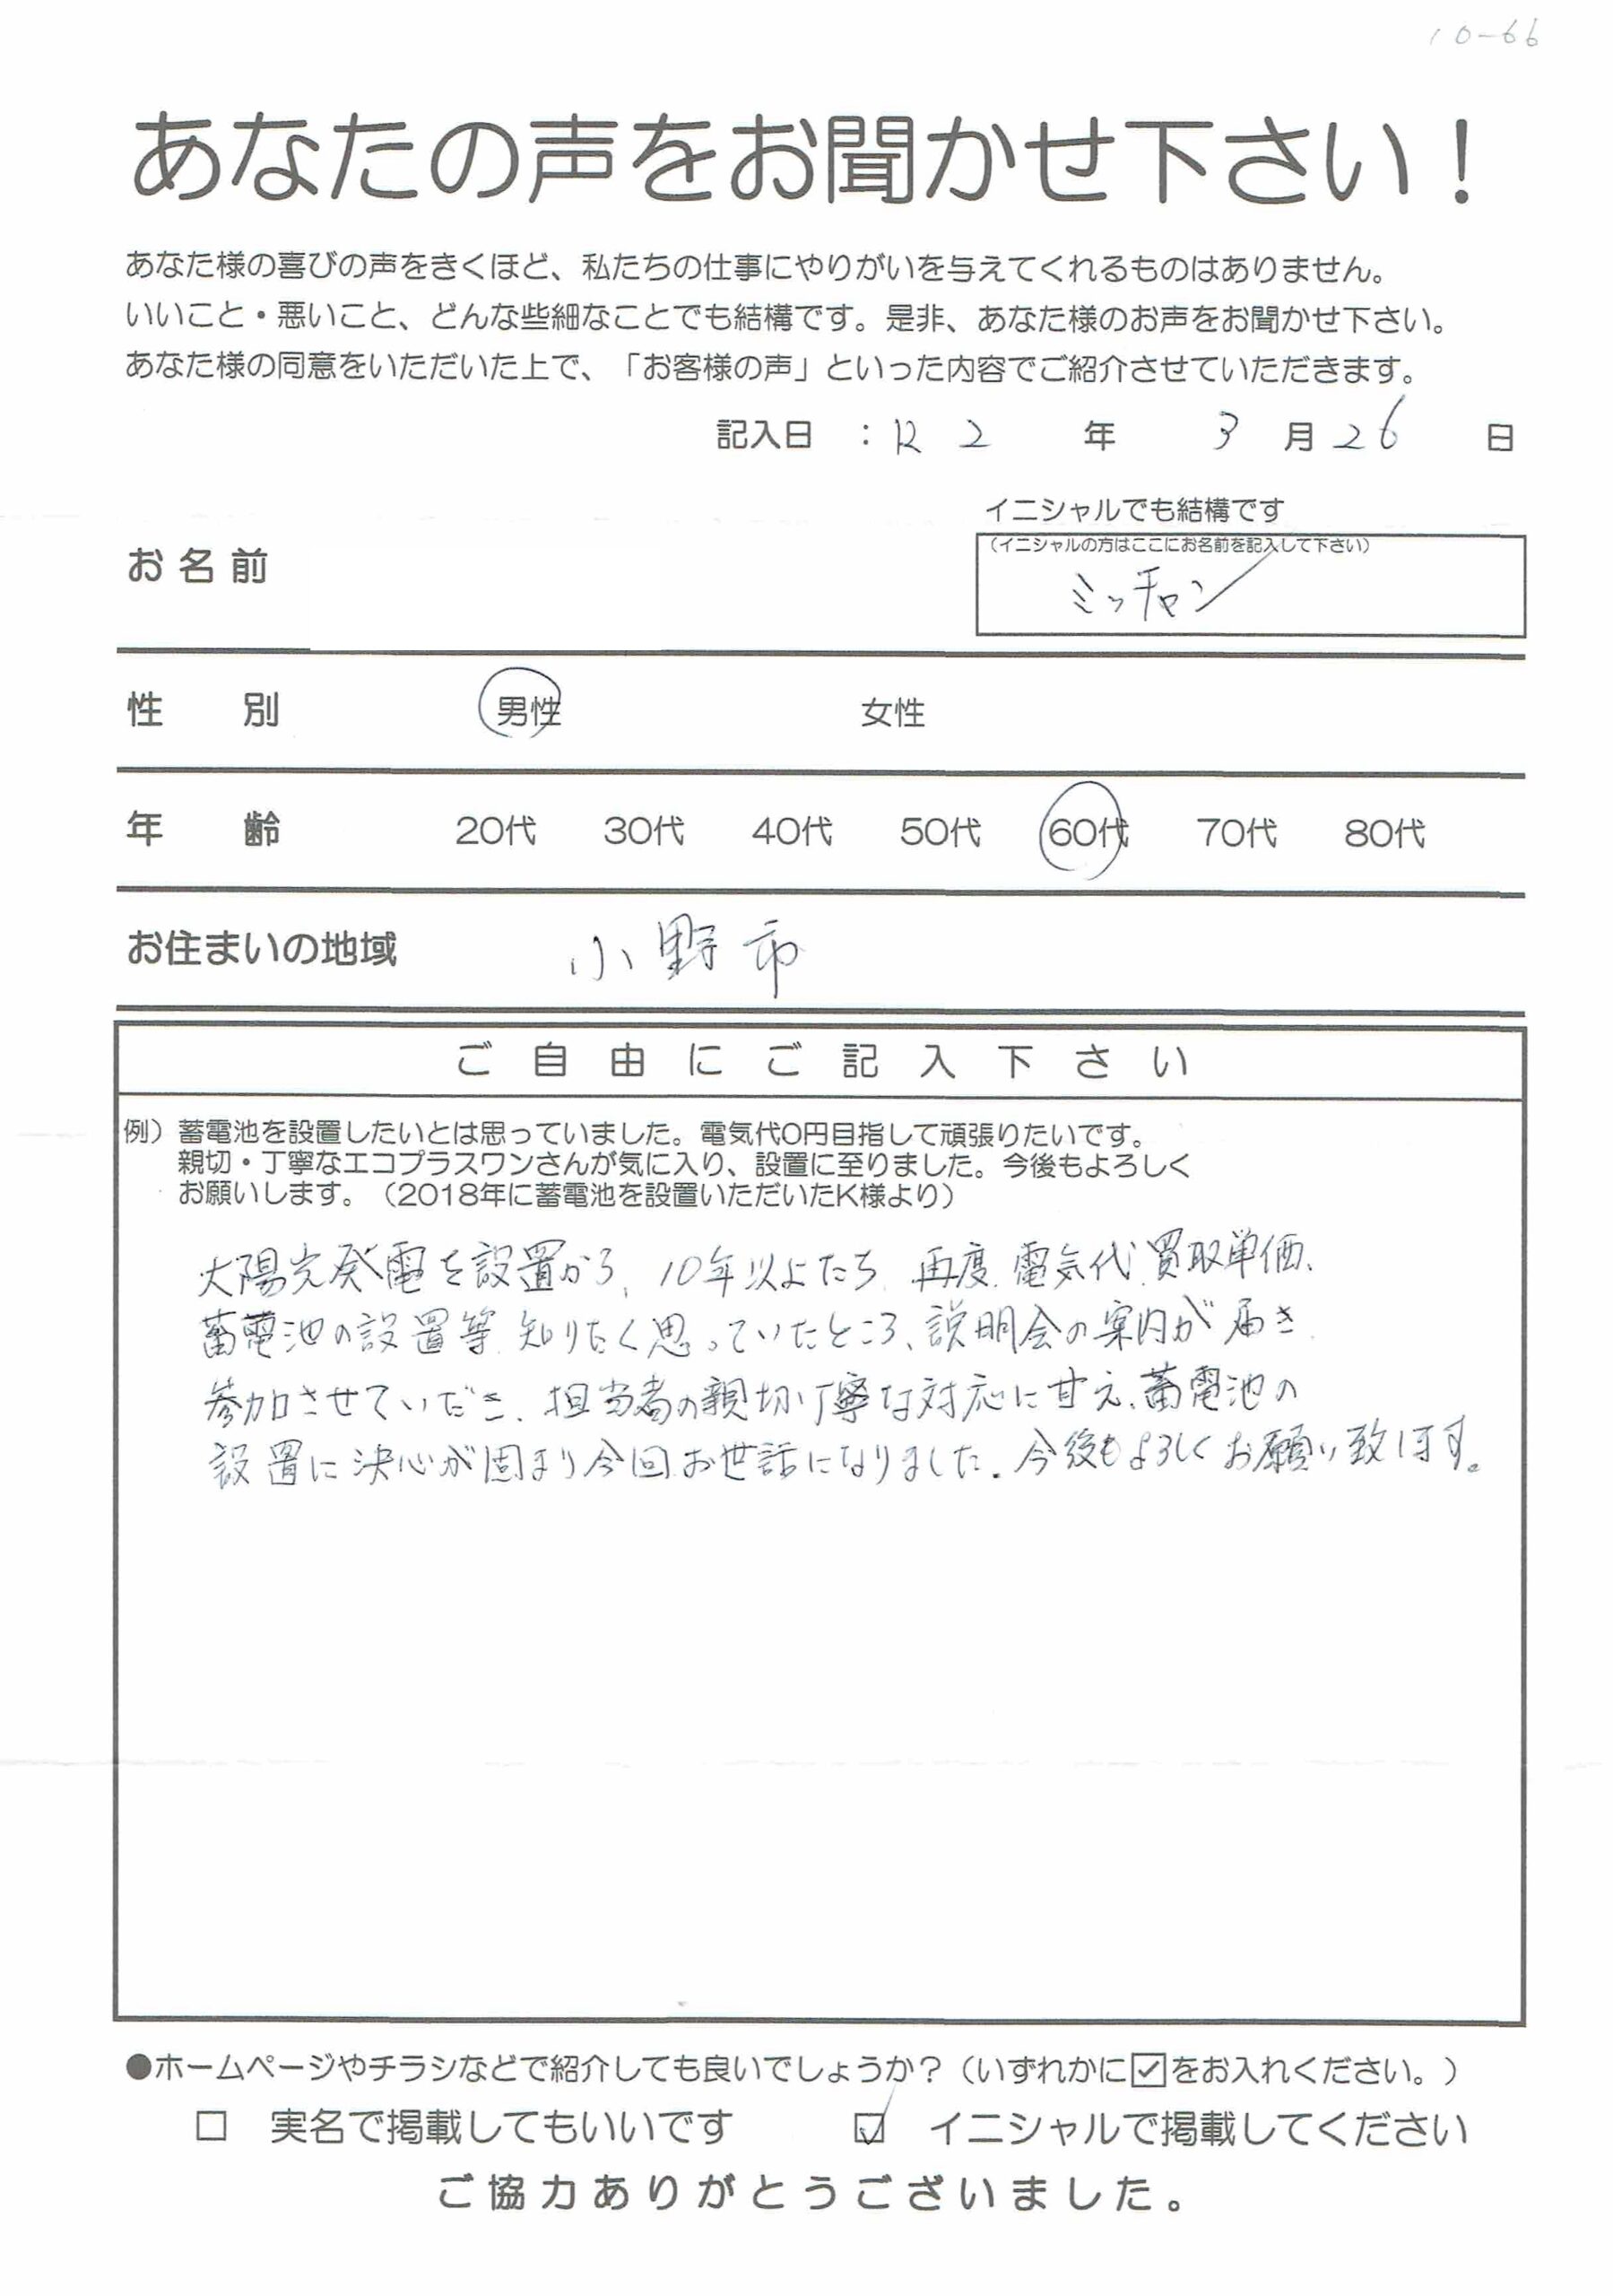 10-66
あなたの声をお聞かせ下さい！
あなた様の喜びの声をきくほど、私たちの仕事にやりがいを与えてくれるものはありません。
いいこと・悪いこと、どんな些細なことでも結構です。是非、あなた様のお声をお聞かせ下さい。
あなた様の同意をいただいた上で、「お客様の声」といった内容でご紹介させていただきます。
記入日 ：R2 年 3 月 26 日
イニシャルでも結構です
（イニシャルの方はここにお名前を記入して下さい）
お名前 ミッチャン
性 別 男性 女性
年 齢 20代 30代 40代 50代 60代 70代 80代
お住まいの地域 小野市
ご自由にご記入下さい
例）蓄電池を設置したいとは思っていました。電気代0円目指して頑張りたいです。
親切・丁寧なエコプラスワンさんが気に入り、設置に至りました。今後もよろしく
お願いします。（2018年に蓄電池を設置いただいたK様より）
太陽光発電を設置から、10年以上たち、再度、電気代、買取単価、
蓄電池の設置等、知りたく思っていたところ、説明会の案内が届き、
参加させていだき、担当者の親切丁寧な対応に甘え、蓄電池の
設置に決心が固まり今回お世話になりました。今後もよろしくお願い致します。
●ホームページやチラシなどで紹介しても良いでしょうか？（いずれかに☑をお入れください。）
□ 実名で掲載してもいいです ☑ イニシャルで掲載してください
ご協力ありがとうございました。